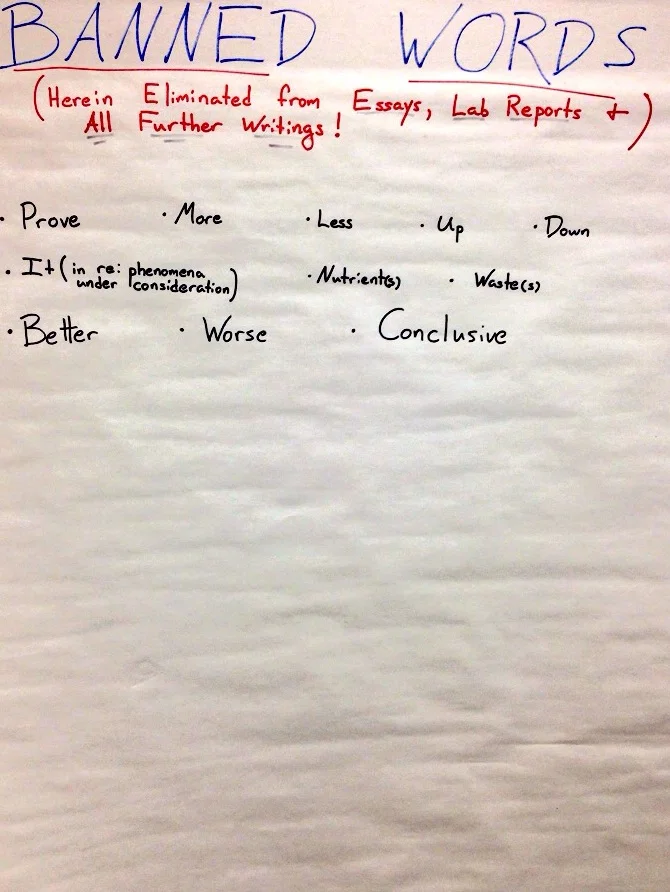 BANNED WORDS
(Herein Eliminated from Essays, Lab Reports +
All Further Writings!)
· Prove · More · Less · Up · Down
· It (in re: phenomena
under consideration) · Nutrient(s) · Waste(s)
· Better · Worse · Conclusive